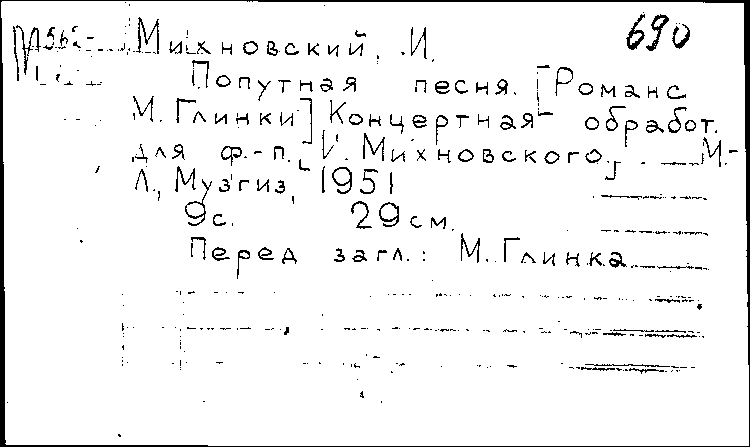 690
М562- Михновский, И.
Попутная песня. [Романс
М. Глинки] Концертная обработ.
для ф.-п. [И. Михновского]. — М.-
Л., Музгиз, 1951
9с. 29см.
Перед загл.: М. Глинка